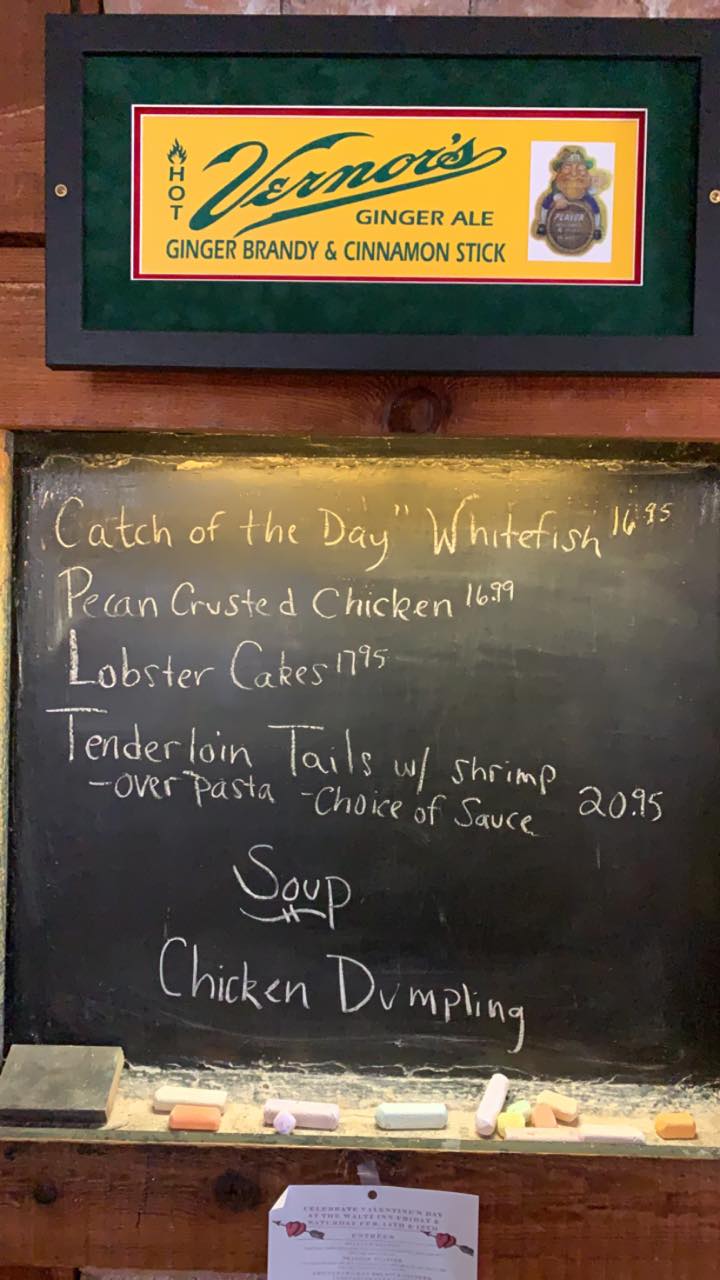 HOT
Vernor's
GINGER ALE
GINGER BRANDY & CINNAMON STICK
PLAYER
"Catch of the Day" Whitefish 16.95
Pecan Crusted Chicken 16.99
Lobster Cakes 17.95
Tenderloin Tails w/ shrimp
-over pasta -Choice of Sauce 20.95
Soup
Chicken Dumpling
CELEBRATE VALENTINE'S DAY
ENTRÉES